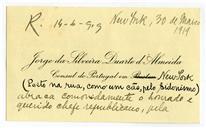 R: 14-4-919
New York, 30 de Março
1919
Jorge da Silveira Duarto d'Almeida
Consul de Portugal em New York
(Posto na rua, como um cão, pelo sidonismo)
abraça comovidamente o honrado e
querido chefe republicano, pela